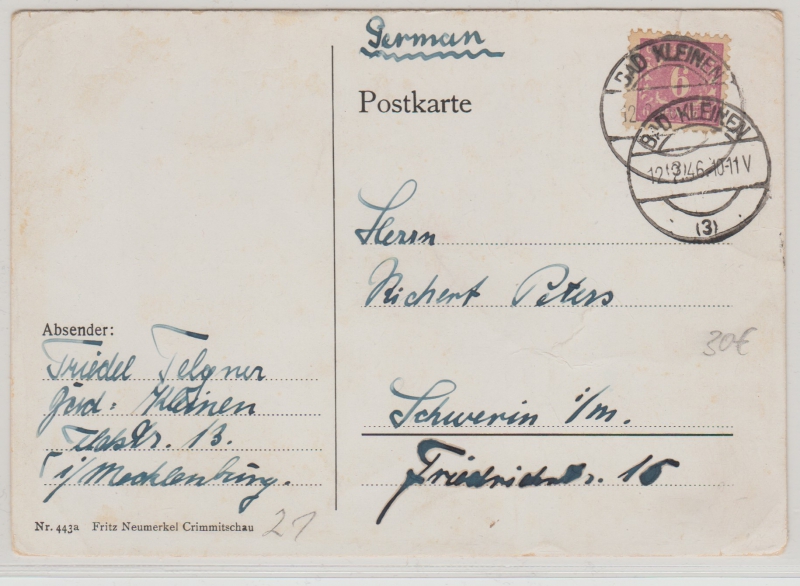 German
Postkarte
6
BAD KLEINEN
12.
BAD KLEINEN
12.9.46.10-11V
(3)
Herrn
Richert Peters
30€
Schwerin i/m.
Friedrichstr. 16
Absender:
Friedel
Bad: Kleinen
13.
i/Mecklenburg.
Nr. 443a Fritz Neumerkel Crimmitschau
21